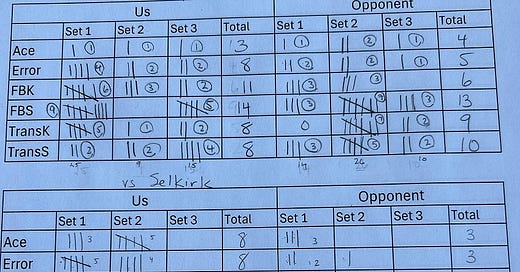 Us Opponent
Set 1 Set 2 Set 3 Total Set 1 Set 2 Set 3 Total
Ace 1 1 1 3 1 2 1 4
Error 4 2 2 8 2 2 1 5
FBK 6 3 2 11 3 3 6
FBS 9 5 14 3 7 3 13
TransK 5 1 2 8 0 7 2 9
TransS 2 2 4 8 3 5 2 10
9 15 26 10
vs Selkirk
Us Opponent
Set 1 Set 2 Set 3 Total Set 1 Set 2 Set 3 Total
Ace 3 5 8 3 3
Error 5 4 8 2 3